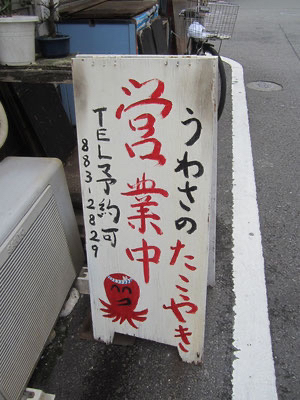 うわさのたこやき
営業中
TEL予約可
883-2829